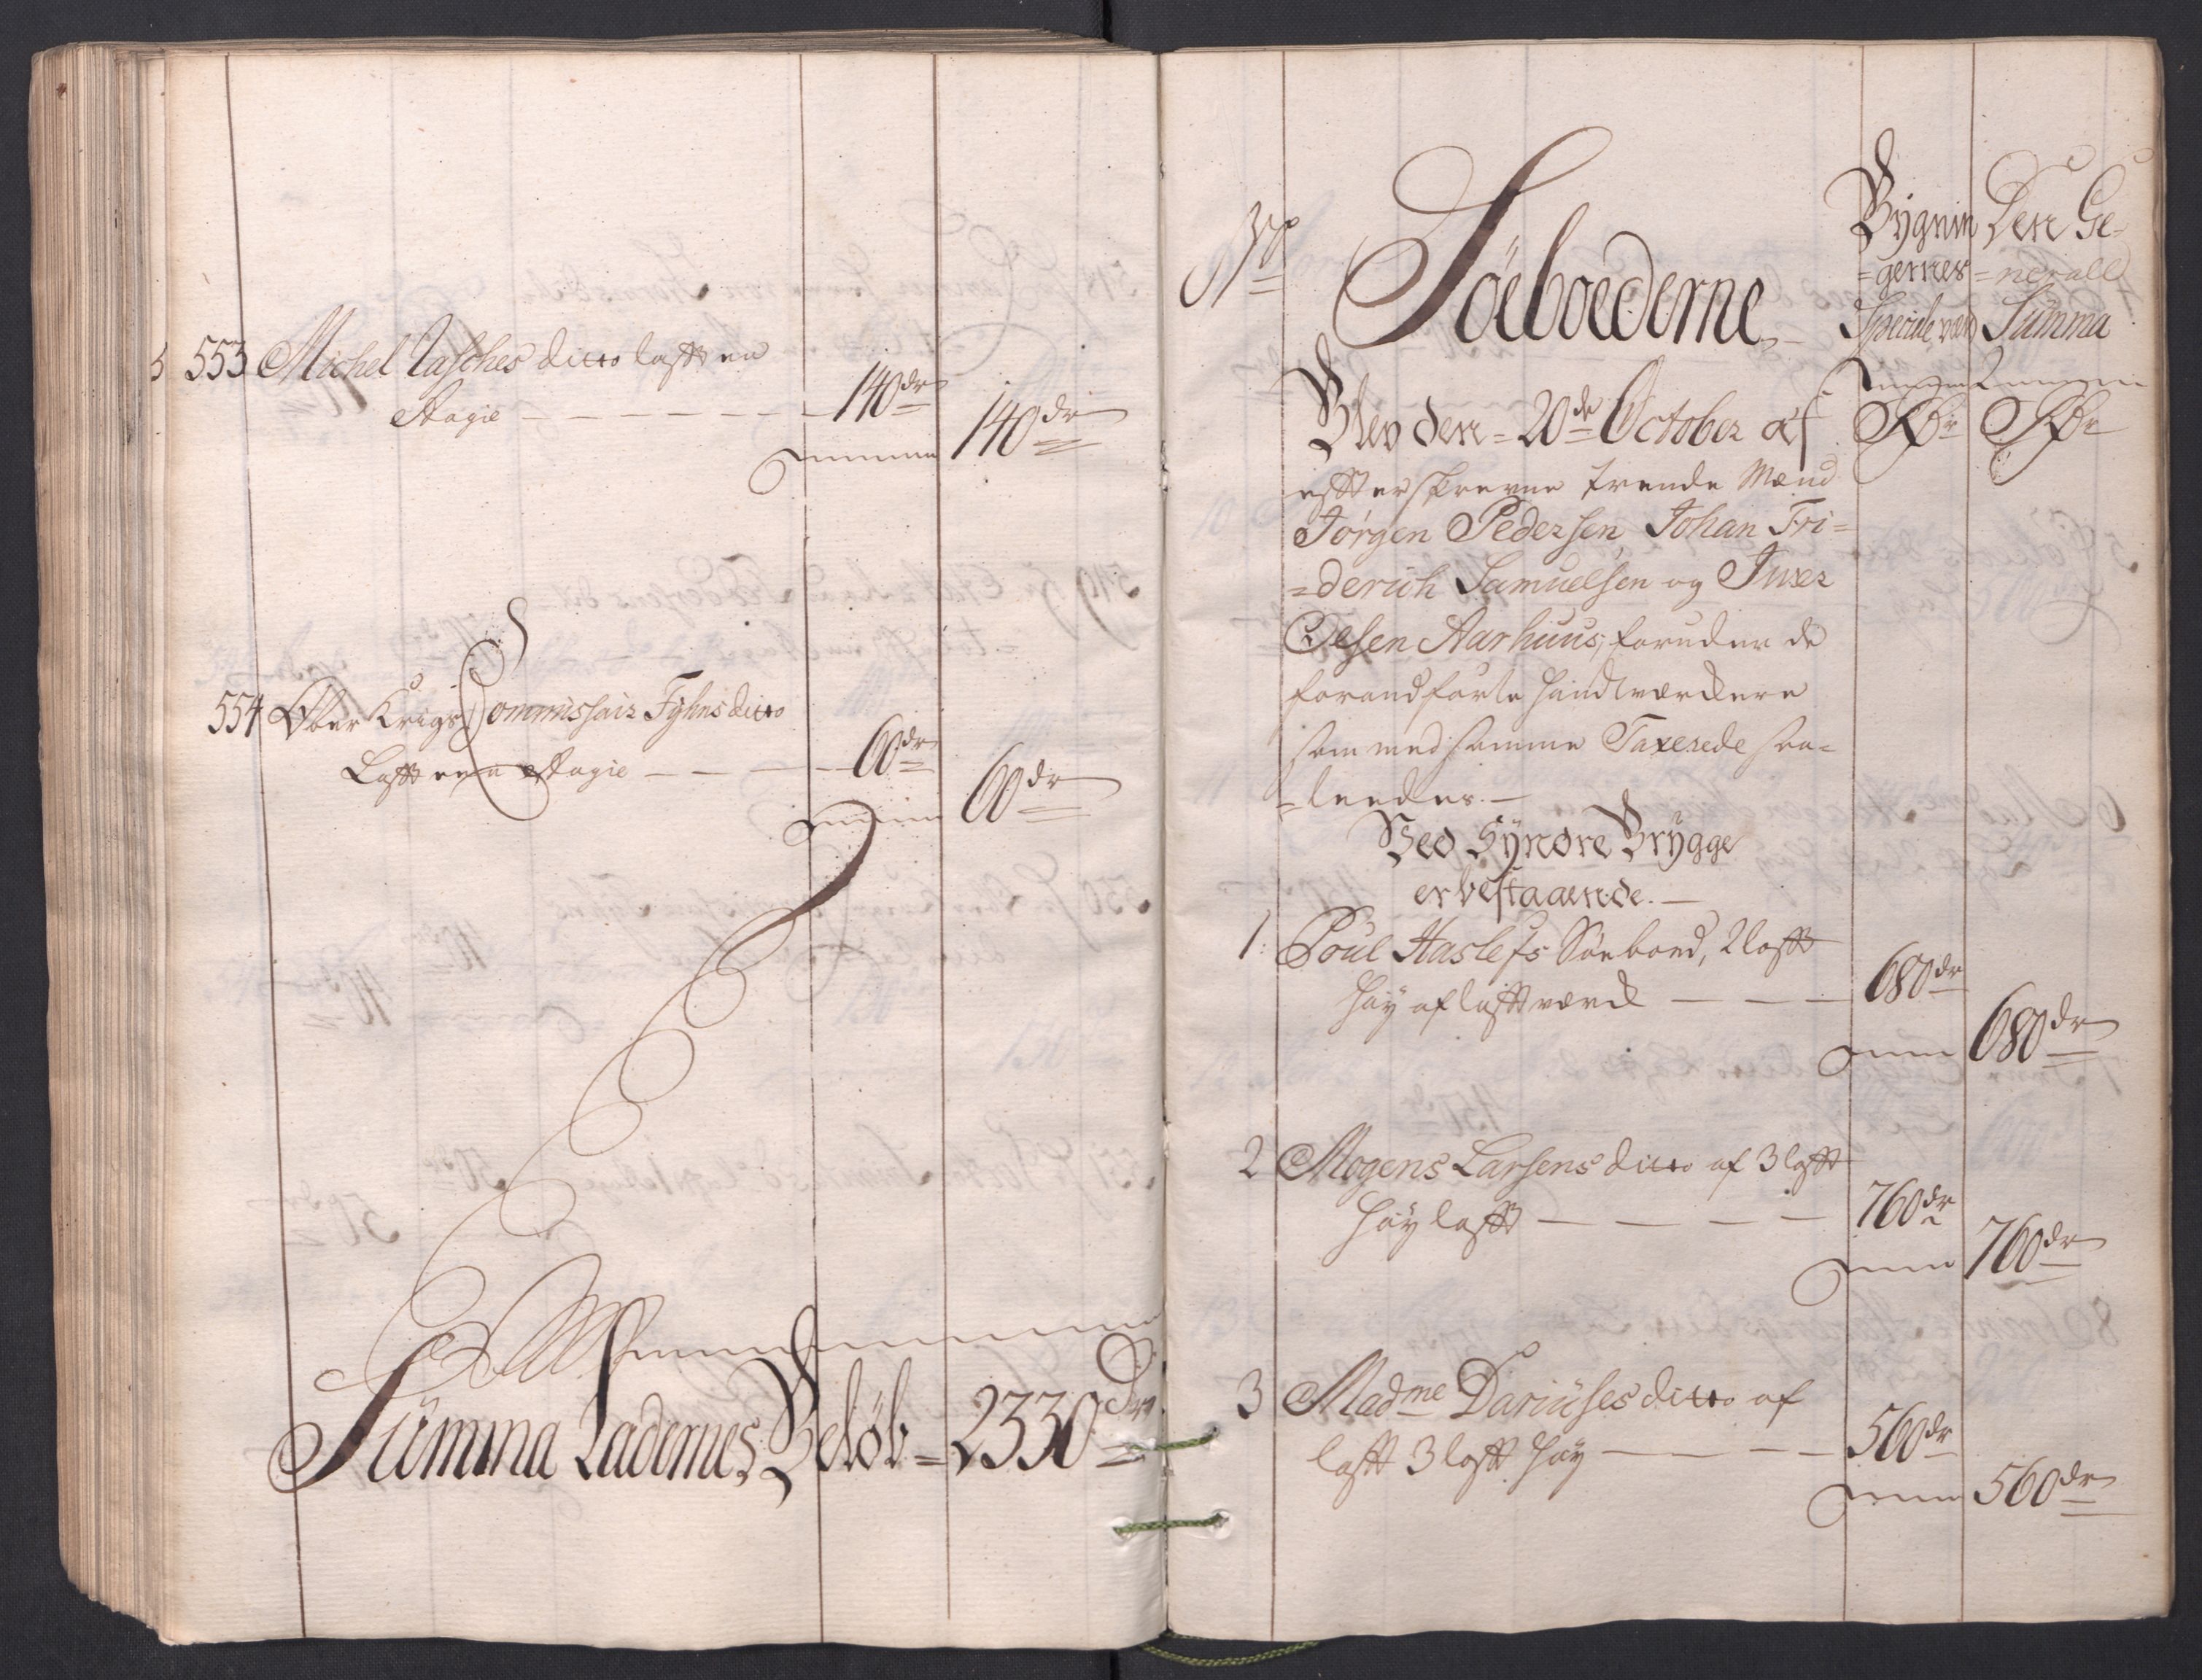 553 Michel Tasches ditto lafft en
Etagie — 140 dr
140 dr
554 Ober Krigs Commissair Fyhns ditto
Lafft een Etagie — 60 dr
60 dr
Summa Ladernes Beløb = 2330 Dr
No
Söeboederne
Bygnin
=gernes
Speciele værd
Den Ge-
=nerall
Summa
Blev den = 20de October af
effterskrevne trende Mænd
Jørgen Pedersen Johan Fri=
=derich Samuelsen og Iver
Olsen Aarhuus, foruden de
forandførte Handtværckere
som med samme Taxerede saa=
=leedes. —
Ved Syndre Brygge
er bestaaende. —
1: Poul Haslefs Søeboed, 2 lafft
høy af lafftværck — 680 dr
680 dr
2 Mogens Larsens ditto af 3 lafft
høy lafft — 760 dr
760 dr
3 Madme Dariuses ditto af
lafft 3 lafft høy — 560 dr
560 dr